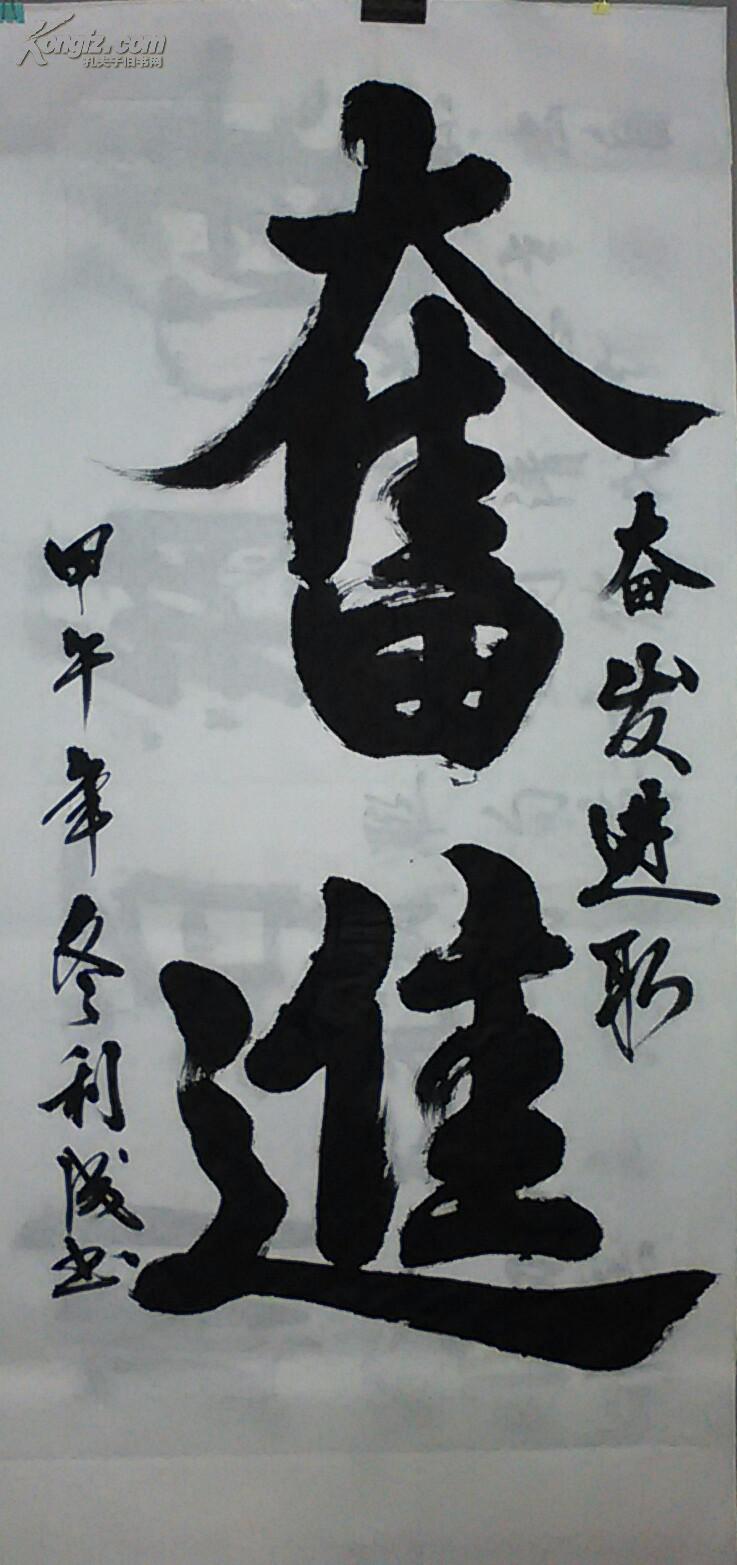 Kongfz.com
孔夫子旧书网
奋发进取
奮進
甲午年冬利成书